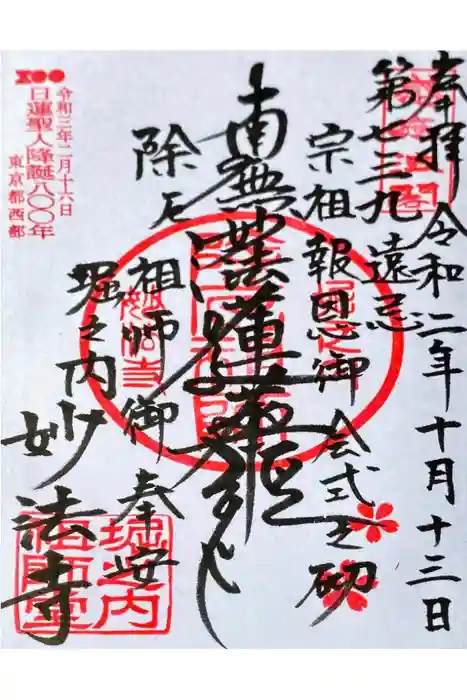 奉拝 令和二年十月十三日
第七三九遠忌
宗祖報恩御会式之砌
南無妙法蓮華経
除厄 祖師御奉安
堀之内妙法寺
令和三年二月十六日
日蓮聖人降誕八〇〇年
東京都西部
堀之内
祖師堂